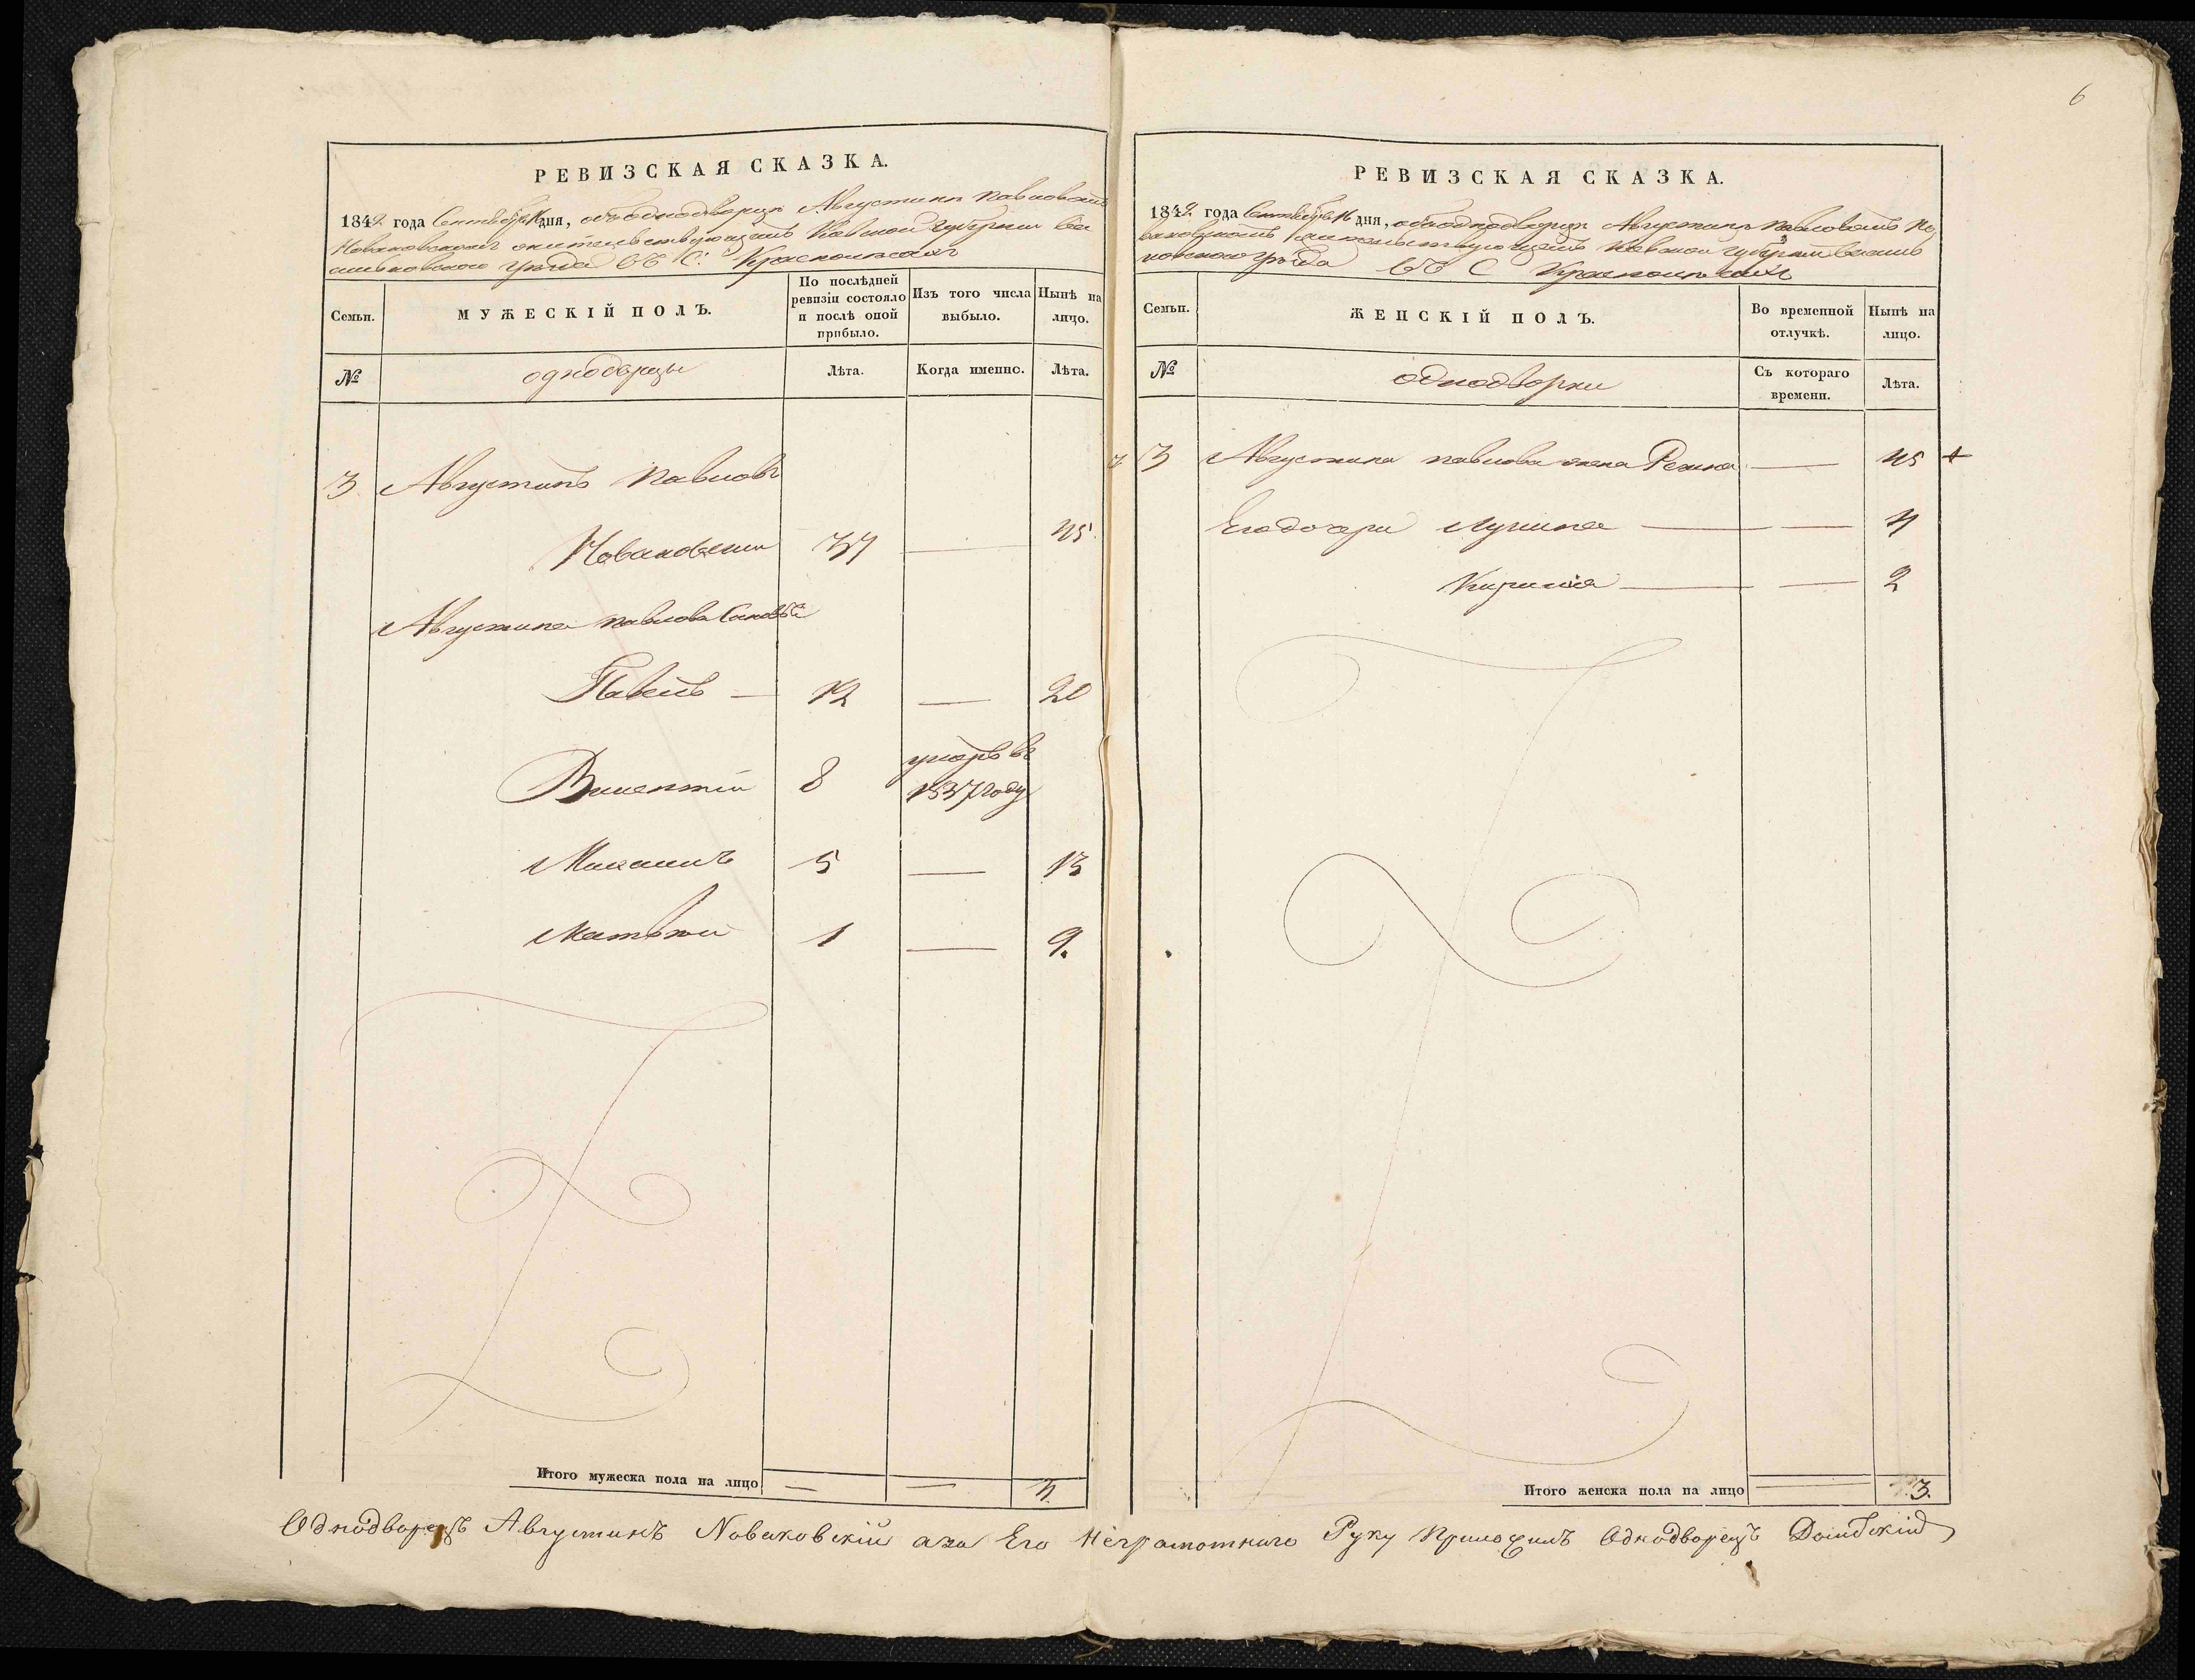 6
РЕВИЗСКАЯ СКАЗКА.
1842. года Сентября 16 дня, объ однодворцѣ Августинѣ Павловомъ
Новаковскомъ жительствующемъ Кіевской Губерніи
уѣзда въ С:
Семьи.
МУЖЕСКІЙ ПОЛЪ.
По послѣдней ревизіи состояло и послѣ оной прибыло.
Изъ того числа выбыло.
Нынѣ на лицо.
№
однодворцы
Лѣта.
Когда именно.
Лѣта.
3 Августинъ Павловъ
Новаковскій 37 — 45.
Августина Павлова Сыновья
Павелъ — 12 — 20
Викентій 8 умеръ въ 1837 году
Михаилъ 5 — 13
Матвѣй 1 — 9.
Итого мужеска пола на лицо — — 4.
РЕВИЗСКАЯ СКАЗКА.
1842. года Сентября 16 дня, объ однодворцѣ Августинѣ Павловомъ Но
ваковскомъ жительствующемъ Кіевской Губерніи
уѣзда въ С
Семьи.
ЖЕНСКІЙ ПОЛЪ.
Во временной отлучкѣ.
Нынѣ на лицо.
№
однодворки
Съ котораго времени.
Лѣта.
3 Августина Павлова жена Регина — 45 +
Его дочери — — 4
— — 2
Итого женска пола на лицо 3.
Однодворецъ Августинъ Новаковскій а за Его Неграмотнаго Руку Приложилъ Однодворецъ